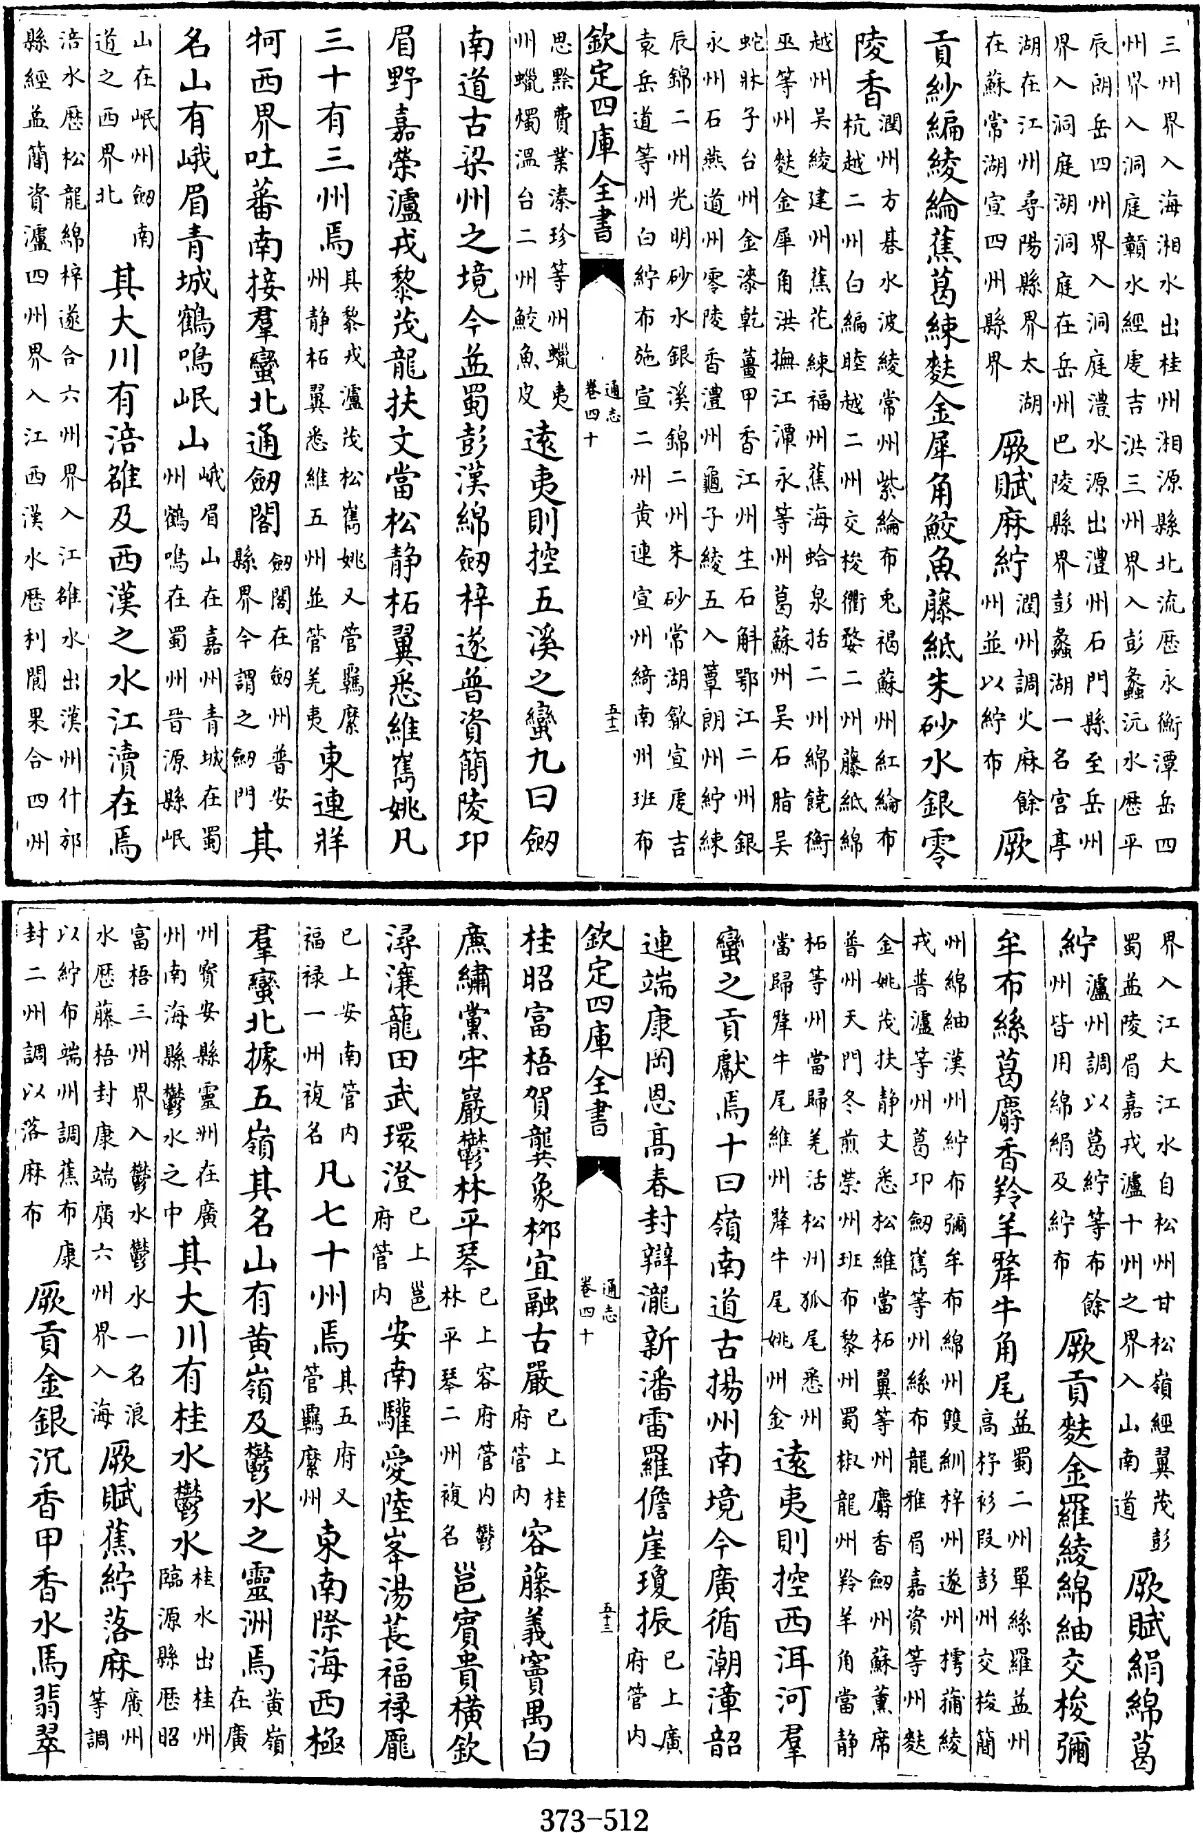 三州界入海湘水出桂州湘源縣北流歷永衡潭岳四
州界入洞庭贛水經虔吉洪三州界入彭蠡沅水歷平
辰朗岳四州界入洞庭澧水源出澧州石門縣至岳州
界入洞庭湖洞庭在岳州巴陵縣界彭蠡湖一名宮亭
湖在江州尋陽縣界太湖在蘇常湖宣四州縣界厥賦麻紵潤州調火麻餘州並以紵布厥
貢紗編綾綸蕉葛練麩金犀角鮫魚藤紙朱砂水銀零
陵香潤州方棊水波綾常州紫綸布兎褐蘇州紅綸布杭越二州白編睦越二州交梭衢婺二州藤紙綿
越州吳綾建州蕉花練福州蕉海蛤泉括二州綿饒衡
巫等州麩金犀角洪撫江潭永等州葛蘇州吳石脂吳
蛇牀子台州金漆乾薑甲香江州生石斛鄂江二州銀
永州石燕道州零陵香澧州龜子綾五入簟朗州紵練
辰錦二州光明砂水銀溪錦二州朱砂常湖歙宣虔吉
袁岳道等州白紵布施宣二州黄連宣州綺南州班布
欽定四庫全書 通志卷四十 五十二
思黔費業溱珍等州蠟夷州蠟燭溫台二州鮫魚皮遠夷則控五溪之蠻九曰劒
南道古梁州之境今益蜀彭漢綿劒梓遂普資簡陵邛
眉野嘉榮瀘戎黎茂龍扶文當松静柘翼悉維嶲姚凡
三十有三州焉其黎戎瀘茂松嶲姚又管羈縻州静柘翼悉維五州並管羌夷東連牂
牁西界吐蕃南接羣蠻北通劒閣劒閣在劒州普安縣界今謂之劒門其
名山有峨眉青城鶴鳴岷山峨眉山在嘉州青城在蜀州鶴鳴在蜀州晉源縣岷
山在岷州劒南道之西界北其大川有涪雒及西漢之水江瀆在焉
涪水歷松龍綿梓遂合六州界入江雒水出漢州什邡
縣經益簡資瀘四州界入江西漢水歷利閬果合四州
界入江大江水自松州甘松嶺經翼茂彭蜀益陵眉嘉戎瀘十州之界入山南道厥賦絹綿葛
紵瀘州調以葛紵等布餘州皆用綿絹及紵布厥貢麩金羅綾綿紬交梭彌
牟布絲葛麝香羚羊犛牛角尾益蜀二州單絲羅益州高杼衫段彭州交梭簡
州綿紬漢州紵布彌牟布綿州雙紃梓州遂州樗蒲綾
戎普瀘等州葛邛劒嶲等州絲布龍雅眉嘉資等州麩
金姚茂扶静文悉松維當柘翼等州麝香劒州蘇薰席
普州天門冬煎榮州班布黎州蜀椒龍州羚羊角當静
柘等州當歸羌活松州狐尾悉州當歸犛牛尾維州犛牛尾姚州金遠夷則控西洱河羣
蠻之貢獻焉十曰嶺南道古揚州南境今廣循潮漳韶
連端康岡恩高春封辯瀧新潘雷羅儋崖瓊振已上廣府管内
欽定四庫全書 通志卷四十 五十三
桂昭富梧賀龔象栁宜融古嚴已上桂府管内容藤義竇禺白
廉繡黨牢巖鬱林平琴已上容府管内鬱林平琴二州複名邕賓貴横欽
潯瀼籠田武環澄已上邕府管内安南驩愛陸峯湯萇福禄龎
已上安南管内福禄一州複名凡七十州焉其五府又管羈縻州東南際海西極
羣蠻北據五嶺其名山有黄嶺及鬱水之靈洲焉黄嶺在廣
州寳安縣靈洲在廣州南海縣鬱水之中其大川有桂水鬱水桂水出桂州臨源縣歷昭
富梧三州界入鬱水鬱水一名浪水歷藤梧封康端廣六州界入海厥賦蕉紵落麻廣州等調
以紵布端州調蕉布康封二州調以落麻布厥貢金銀沉香甲香水馬翡翠
373-512